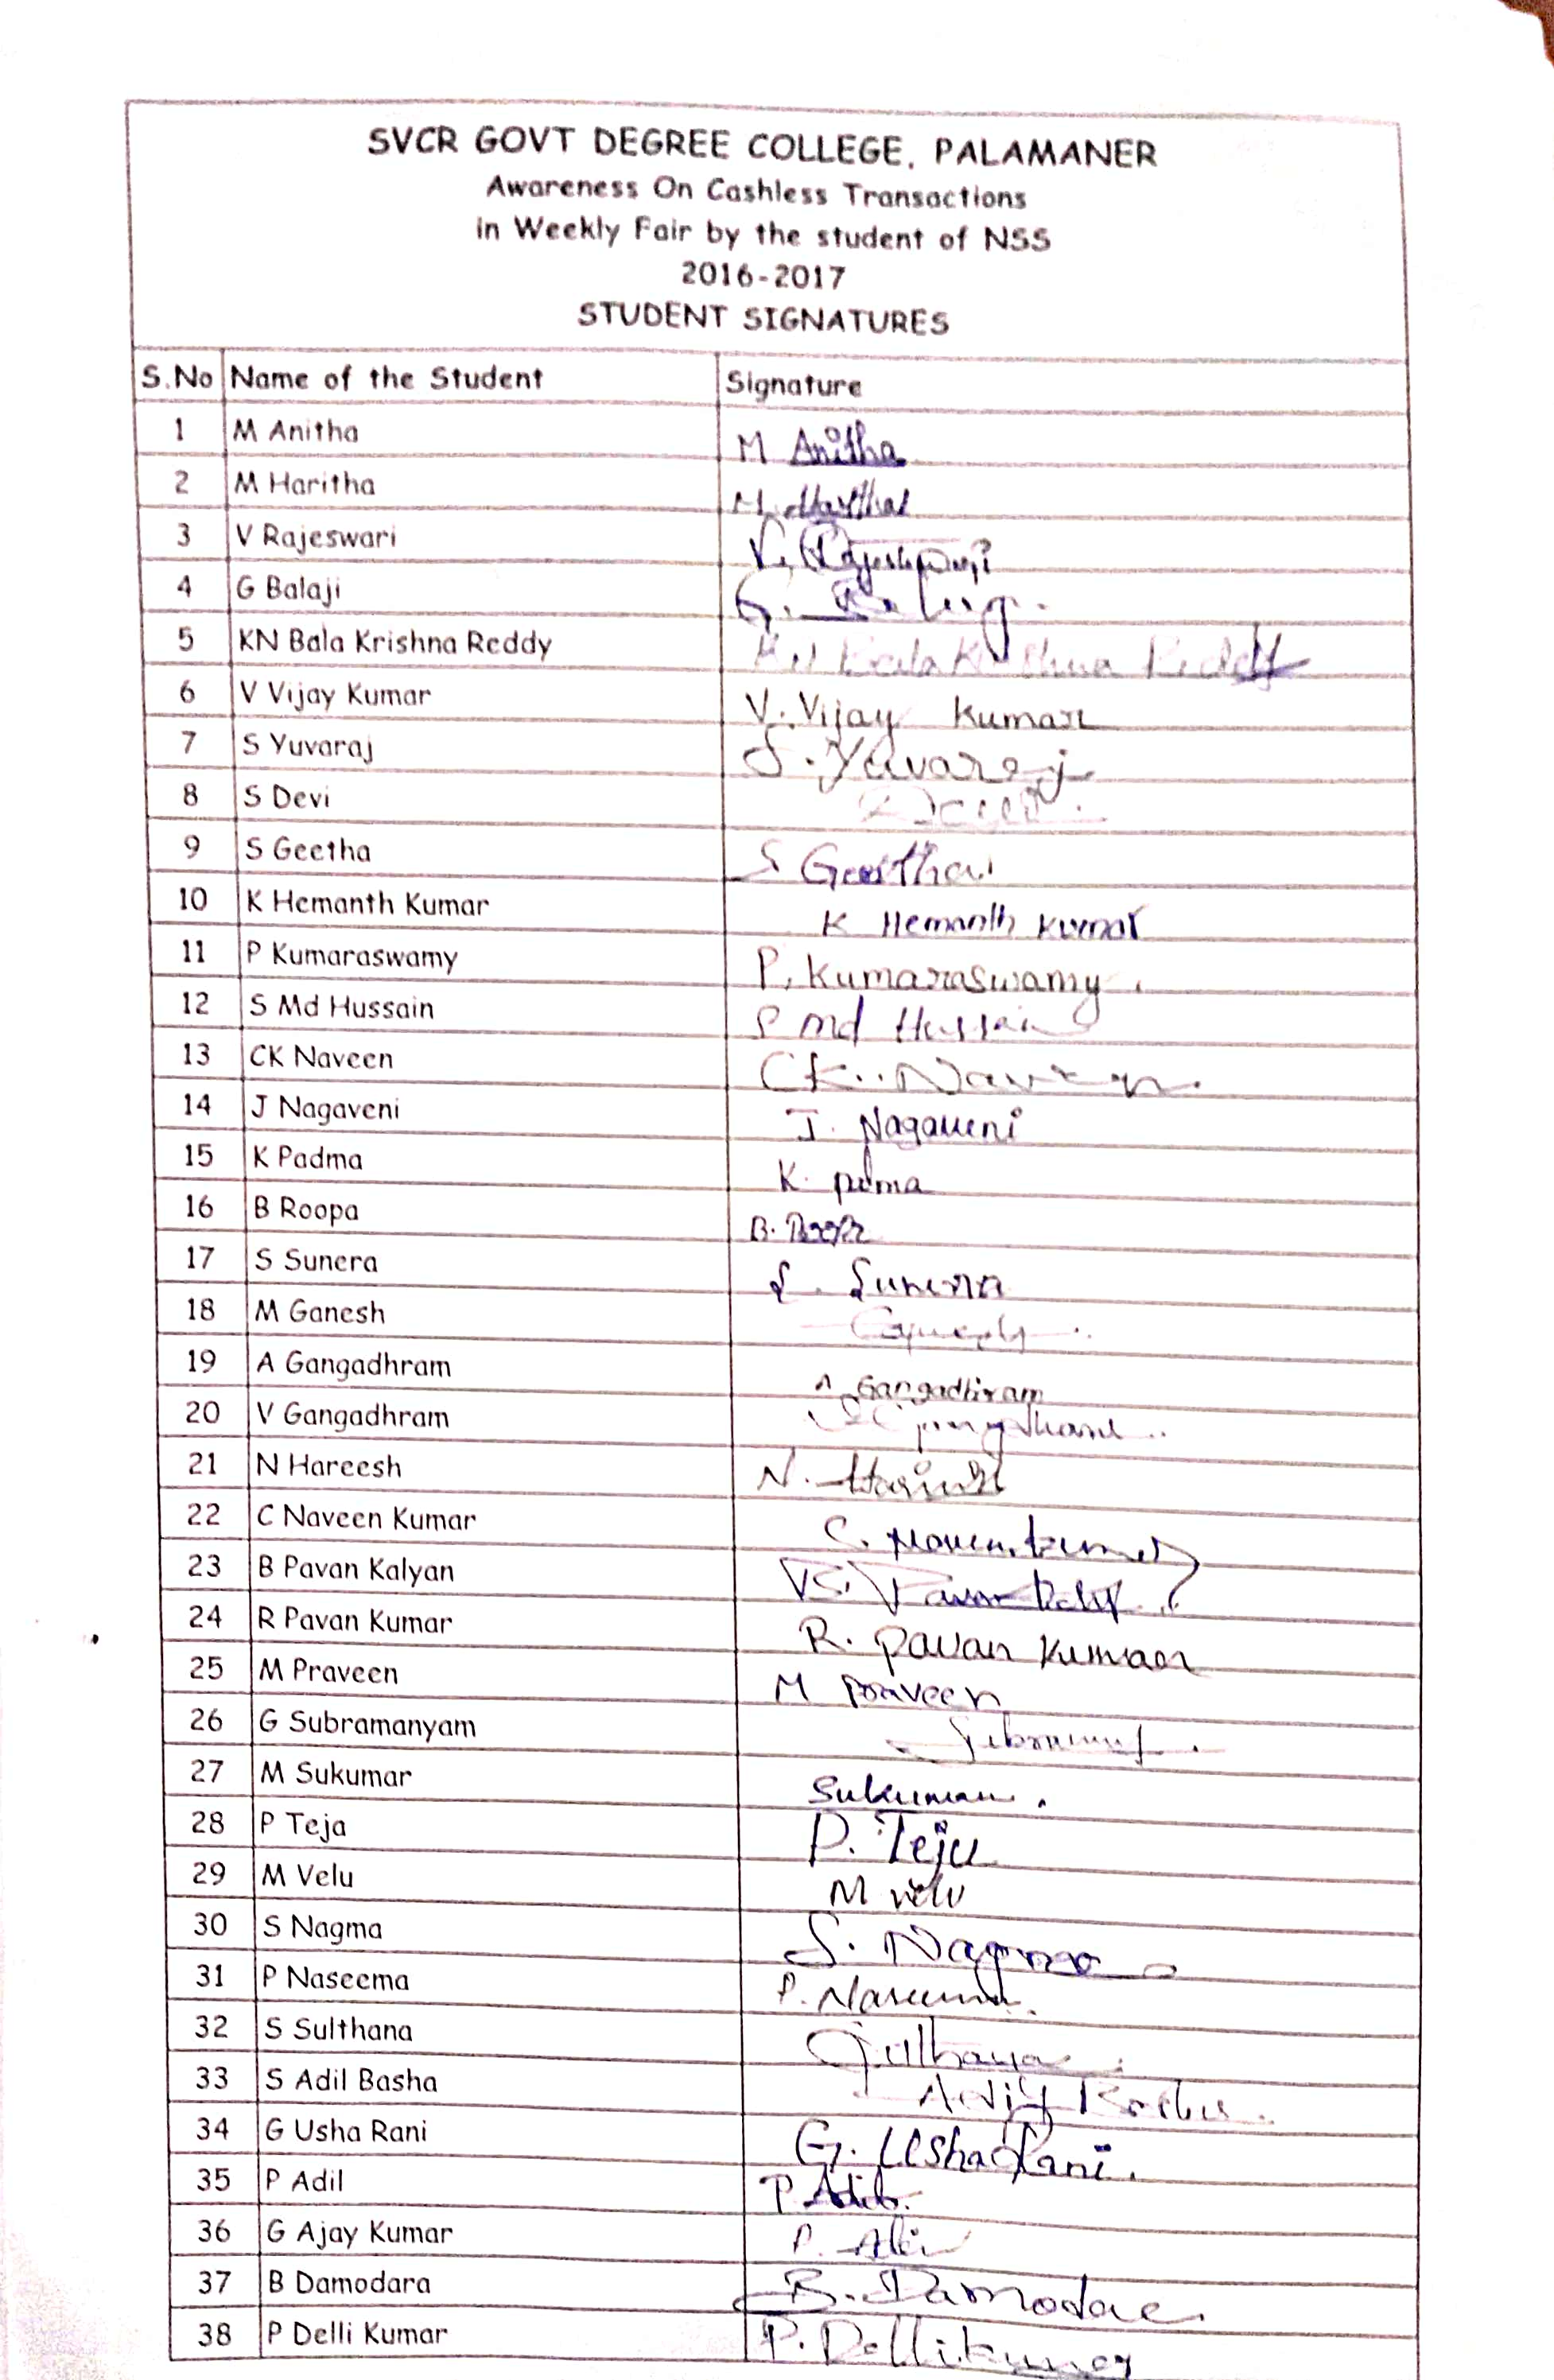 SVCR GOVT DEGREE COLLEGE, PALAMANER
Awareness On Cashless Transactions
in Weekly Fair by the student of NSS
2016-2017
STUDENT SIGNATURES
S.No Name of the Student Signature
1 M Anitha M Anitha
2 M Haritha M. Haritha
3 V Rajeswari V. Rajeshwari
4 G Balaji G. Balaji
5 KN Bala Krishna Reddy KN Bala Krishna Reddy
6 V Vijay Kumar V. Vijay Kumar
7 S Yuvaraj S. Yuvaraj
8 S Devi
9 S Geetha S Geetha
10 K Hemanth Kumar K Hemanth Kumar
11 P Kumaraswamy P. Kumaraswamy
12 S Md Hussain S md Hussain
13 CK Naveen CK. Naveen
14 J Nagaveni J. Nagaveni
15 K Padma K. pdma
16 B Roopa B. Roopa
17 S Sunera S. Sunera
18 M Ganesh
19 A Gangadhram A Gangadhram
20 V Gangadhram
21 N Hareesh N.
22 C Naveen Kumar C. Naveen kumar
23 B Pavan Kalyan B. Pavan
24 R Pavan Kumar R. Pavan Kumar
25 M Praveen M Praveen
26 G Subramanyam
27 M Sukumar Sukumar.
28 P Teja P. Teju
29 M Velu M velu
30 S Nagma S. Nagma
31 P Naseema P. Naseema.
32 S Sulthana Sulthana
33 S Adil Basha Adil Basha
34 G Usha Rani G. Usha Rani.
35 P Adil P. Adil
36 G Ajay Kumar P.
37 B Damodara B. Damodara
38 P Delli Kumar P. Delli kumar